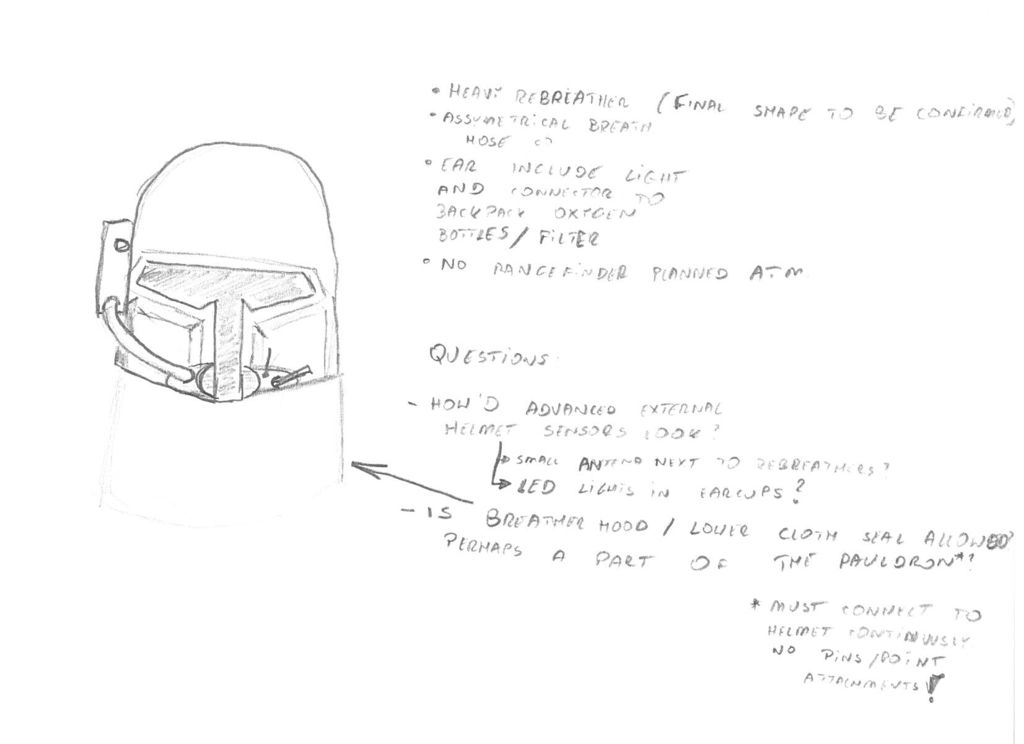 • HEAVY REBREATHER (FINAL SHAPE TO BE CONFIRMED)
• ASSYMETRICAL BREATH
HOSE
• EAR INCLUDE LIGHT
AND CONNECTOR TO
BACKPACK OXYGEN
BOTTLES/FILTER
• NO RANGEFINDER PLANNED ATM
QUESTIONS:
- HOW'D ADVANCED EXTERNAL
HELMET SENSORS LOOK?
SMALL ANTENA NEXT TO REBREATHERS?
LED LIGHTS IN EARCUPS?
- IS BREATHER HOOD / LOWER CLOTH SEAL ALLOWED?
PERHAPS A PART OF THE PAULDRON*?
* MUST CONNECT TO
HELMET CONTINUUSLY
NO PINS/POINT
ATTACHMENTS!